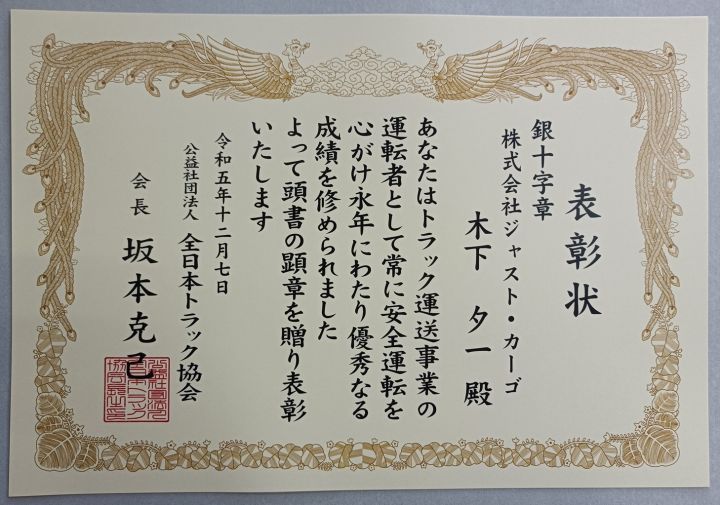 表彰状
銀十字章
株式会社ジャスト・カーゴ
木下夕一殿
あなたはトラック運送事業の
運転者として常に安全運転を
心がけ永年にわたり優秀なる
成績を修められました
よって頭書の顕章を贈り表彰
いたします
令和五年十二月七日
公益社団法人 全日本トラック協会
会長 坂本克己